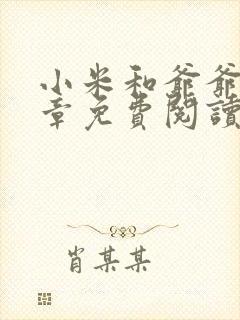 小米和爺爺
章免費閱讀
肖某某